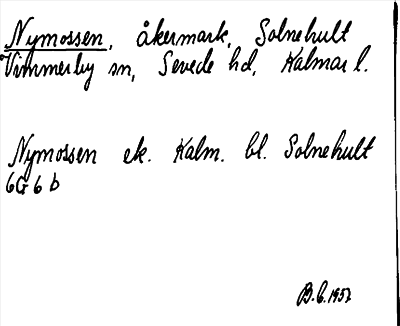 Nymossen, åkermark, Solnehult
Vimmerby sn, Sevede hd, Kalmar l.
Nymossen ek. Kalm. bl. Solnehult
6G 6 b
B.C. 1957